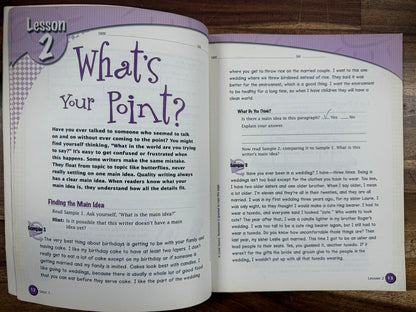 Lesson
2
NAME
DATE
What's
Your Point?
Have you ever talked to someone who seemed to talk
on and on without ever coming to the point? You might
find yourself thinking, "What in the world are you trying
to say?" It's easy to get confused or frustrated when
this happens. Some writers make the same mistake.
They float from topic to topic like butterflies, never
really settling on one main idea. Quality writing always
has a clear main idea. When readers know what your
main idea is, they understand how all the details fit.
Finding the Main Idea
Read Sample 1. Ask yourself, "What is the main idea?"
Hint: Is it possible that this writer doesn't have a main
idea yet?
Sample 1
The very best thing about birthdays is getting to be with your family and
having cake. I like my birthday cake to have at least two layers. I don't
really get to eat a lot of cake except on my birthday or if someone is
getting married and my family is invited. Cakes look best with candles. I
like going to weddings, because there is usually a whole lot of good food
that you can eat before they serve cake. I like the part of the wedding
12
where you get to throw rice on the married couple. I went to this one
wedding where we threw birdseed instead of rice. They said it was
better for the environment, which is a good thing. I want the environment
to be healthy for a long time, so when I have children they will have a
clean world.
What Do You Think?
Is there a main idea in this paragraph? Yes No
Explain your answer.
Now read Sample 2, comparing it to Sample 1. What is this
writer's main idea?
Sample 2
Have you ever been in a wedding? I have—three times. Being in
weddings isn't too bad except for the clothes you have to wear. You see,
I have two older sisters and one older brother. When I say older, I mean
a lot older. I'm eleven and they're all in their twenties, and they are all
married. I was in my first wedding three years ago, for my sister Laurie. I
was only eight, so they thought I would make a cute ring bearer. I had to
wear a tuxedo, and everyone said I looked "cute." Who wants to look
cute? The year after that, I was a candle lighter in my brother Roger's
wedding. I was too tall to be a cute ring bearer again, but I still had to
wear a tuxedo. Do you know how uncomfortable those things are? Then
last year, my sister Leslie got married. This time I got to be an usher and
lead people to their seats. Yes, you guessed it, another tuxedo. If it
weren't for the gifts the bride and groom give to the people in the
wedding, I wouldn't put up with all that tuxedo wearing.
Lesson 2
13